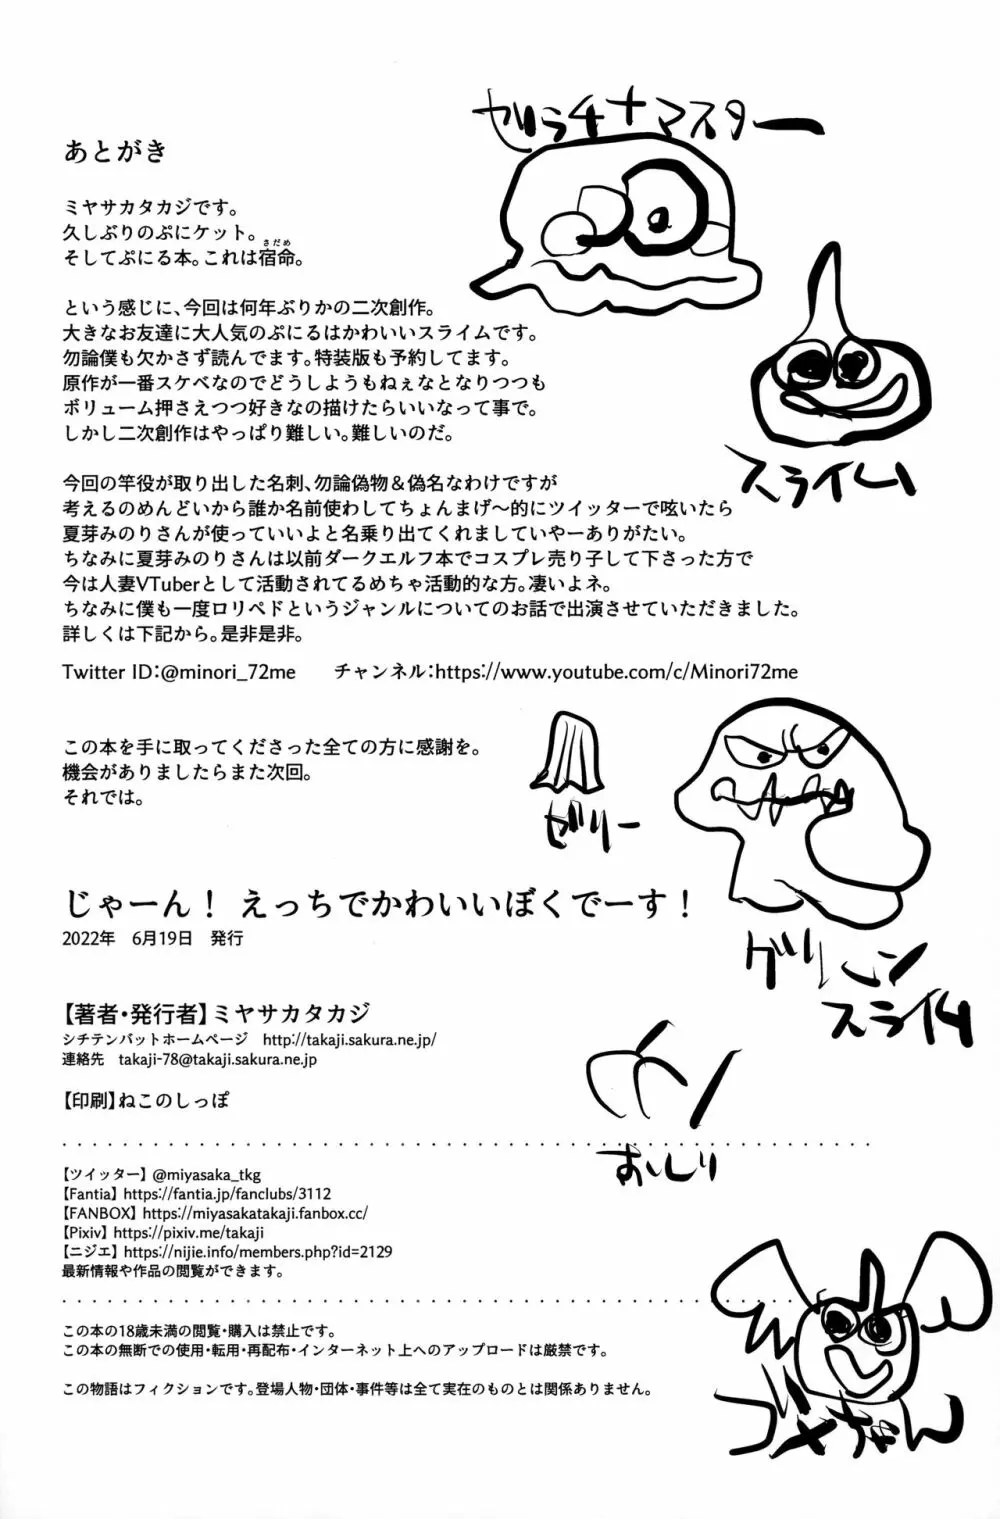 あとがき
ミヤサカタカジです。
久しぶりのぷにケット。
さだめ
そしてぷにる本。これは宿命。
という感じに、今回は何年ぶりかの二次創作。
大きなお友達に大人気のぷにるはかわいいスライムです。
勿論僕も欠かさず読んでます。特装版も予約してます。
原作が一番スケベなのでどうしようもねぇなとなりつつも
ボリューム押さえつつ好きなの描けたらいいなって事で。
しかし二次創作はやっぱり難しい。難しいのだ。
今回の竿役が取り出した名刺、勿論偽物&偽名なわけですが
考えるのめんどいから誰か名前使わしてちょんまげ〜的にツイッターで呟いたら
夏芽みのりさんが使っていいよと名乗り出てくれましていやーありがたい。
ちなみに夏芽みのりさんは以前ダークエルフ本でコスプレ売り子して下さった方で
今は人妻VTuberとして活動されてるめちゃ活動的な方。凄いよネ。
ちなみに僕も一度ロリペドというジャンルについてのお話で出演させていただきました。
詳しくは下記から。是非是非。
Twitter ID:@minori_72me　チャンネル:https://www.youtube.com/c/Minori72me
この本を手に取ってくださった全ての方に感謝を。
機会がありましたらまた次回。
それでは。
じゃーん！ えっちでかわいいぼくでーす！
2022年　6月19日　発行
【著者・発行者】ミヤサカタカジ
シチテンバットホームページ　http://takaji.sakura.ne.jp/
連絡先　takaji-78@takaji.sakura.ne.jp
【印刷】ねこのしっぽ
【ツイッター】@miyasaka_tkg
【Fantia】https://fantia.jp/fanclubs/3112
【FANBOX】https://miyasakatakaji.fanbox.cc/
【Pixiv】https://pixiv.me/takaji
【ニジエ】https://nijie.info/members.php?id=2129
最新情報や作品の閲覧ができます。
この本の18歳未満の閲覧・購入は禁止です。
この本の無断での使用・転用・再配布・インターネット上へのアップロードは厳禁です。
この物語はフィクションです。登場人物・団体・事件等は全て実在のものとは関係ありません。
ゼラチナマスター
スライム
ゼリー
グリーン
スライム
おいしり
ゴメちゃん